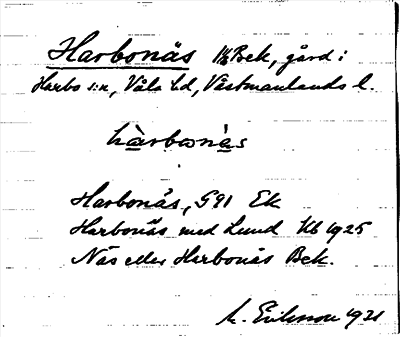 Harbonäs ½ Bek, gård i
Harbo s:n, Våla hd, Västmanlands l.
hàrbonäs
Harbonäs, G 91 Ek
Harbonäs med Lund Kb 1925
Näs eller Harbonäs Bek.
M. Eriksson 1931